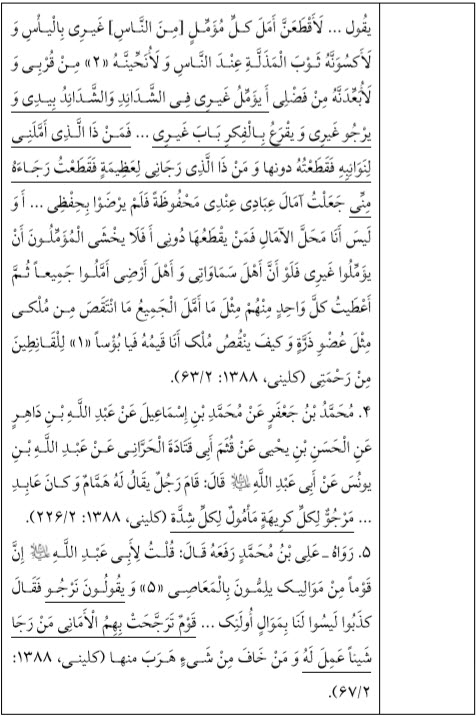 یقُول ... لَأَقْطَعَنَّ أَمَلَ کلِّ مُؤَمِّلٍ [مِنَ النَّاسِ] غَیرِی بِالْیأْسِ وَ
لَأَکسُوَنَّهُ ثَوْبَ الْمَذَلَّةِ عِنْدَ النَّاسِ وَ لَأُنَحِّینَّهُ «۲» مِنْ قُرْبِی وَ
لَأُبَعِّدَنَّهُ مِنْ فَضْلِی أَ یؤَمِّلُ غَیرِی فِی الشَّدَائِدِ وَالشَّدَائِدُ بِیدِی وَ
یرْجُو غَیرِی وَ یقْرَعُ بِالْفِکرِ بَابَ غَیرِی ... فَمَنْ ذَا الَّذِی أَمَّلَنِی
لِنَوَائِبِهِ فَقَطَعْتُهُ دونها وَ مَنْ ذَا الَّذِی رَجَانِی لِعَظِیمَةٍ فَقَطَعْتُ رَجَاءَهُ
مِنِّی جَعَلْتُ آمَالَ عِبَادِی عِنْدِی مَحْفُوظَةً فَلَمْ یرْضَوْا بِحِفْظِی ... أَ وَ
لَیسَ أَنَا مَحَلَّ الْآمَالِ فَمَنْ یقْطَعُهَا دُونِی أَ فَلَا یخْشَی الْمُؤَمِّلُونَ أَنْ
یؤَمِّلُوا غَیرِی فَلَوْ أَنَّ أَهْلَ سَمَاوَاتِی وَ أَهْلَ أَرْضِی أَمَّلُوا جَمِیعاً ثُمَّ
أَعْطَیتُ کلَّ وَاحِدٍ مِنْهُمْ مِثْلَ مَا أَمَّلَ الْجَمِیعُ مَا انْتَقَصَ مِن مُلْکی
مِثْلَ عُضْوِ ذَرَّةٍ وَ کیفَ ینْقُصُ مُلْک أَنَا قَیمُهُ فَیا بُؤْساً «۱» لِلْقَانِطِینَ
مِنْ رَحْمَتِی (کلینی، ۱۳۸۸: ۶۳/۲).
۴. مُحَمَّدُ بْنُ جَعْفَرٍ عَنْ مُحَمَّدِ بْنِ إِسْمَاعِیلَ عَنْ عَبْدِ اللَّهِ بْنِ دَاهِرٍ
عَنِ الْحَسَنِ بْنِ یحْیی عَنْ قُثَمَ أَبِی قَتَادَةَ الْحَرَّانِی عَنْ عَبْدِ اللَّهِ بْنِ
یونُسَ عَنْ أَبِی عَبْدِ اللَّهِ قَالَ: قَامَ رَجُلٌ یقَالُ لَهُ هَمَّامٌ وَ کانَ عَابِدِ
... مَرْجُوٌّ لِکلِّ کرِیهَةٍ مَأْمُولٌ لِکلِّ شِدَّةٍ (کلینی، ۱۳۸۸: ۲۲۶/۲).
۵. رَوَاهُ ـ عَلِی بْنُ مُحَمَّدٍ رَفَعَهُ قَالَ: قُلْتُ لِأَبِی عَبْدِ اللَّهِ إِنَّ
قَوْماً مِنْ مَوَالِیک یلِمُّونَ بِالْمَعَاصِی «۵» وَ یقُولُونَ نَرْجُو فَقَالَ
کذَبُوا لَیسُوا لَنَا بِمَوَالٍ أُولَئِک ... قَوْمٌ تَرَجَّحَتْ بِهِمُ الْأَمَانِی مَنْ رَجَا
شَیئاً عَمِلَ لَهُ وَ مَنْ خَافَ مِنْ شَیءٍ هَرَبَ منها (کلینی، ۱۳۸۸:
۶۷/۲).